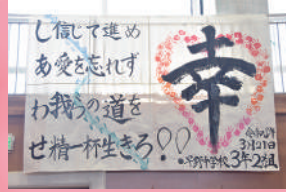 し信じて進め
あ愛を忘れず
わ我らの道を
せ精一杯生きろ!!
幸
3月21日
中学校 3年2組